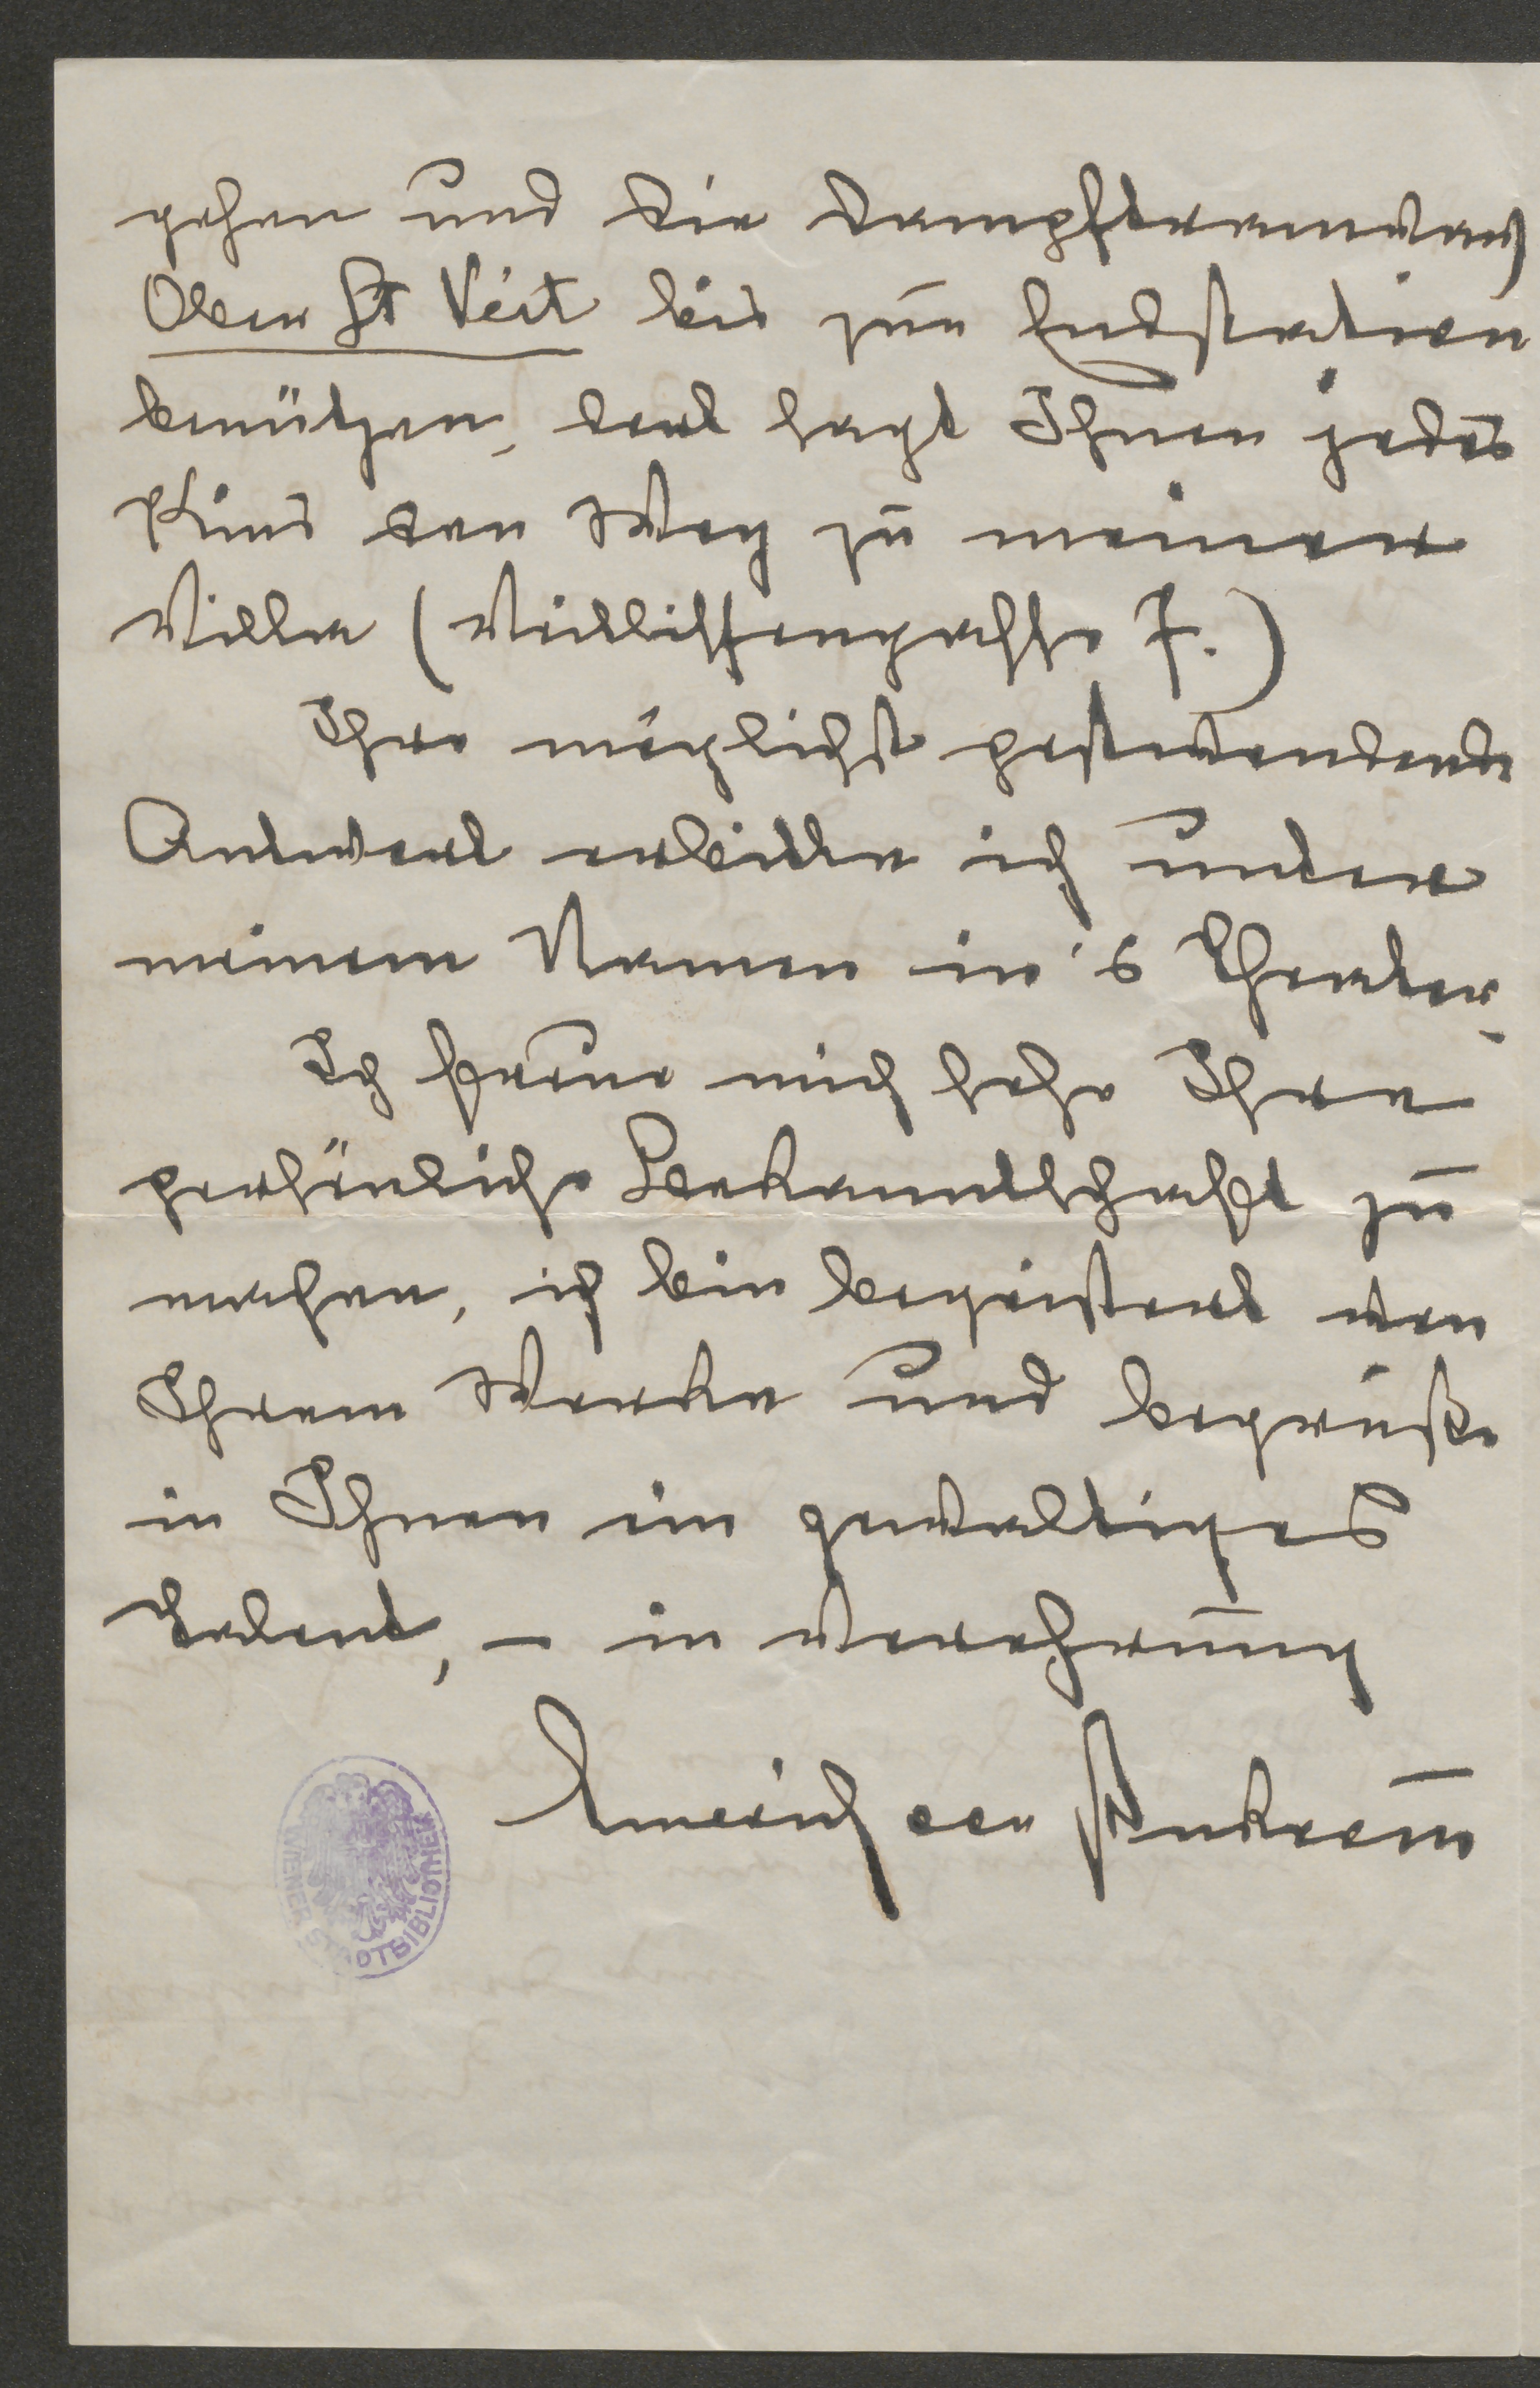 gehen und die Dampftramway
Ober St Veit bis zur Endstation
benützen, dort sagt Ihnen jedes
Kind den Weg zu meiner
Villa (Veitlissengasse 7.)
Ihre möglichst postwendende
Antwort erbitte ich unter
meinem Namen in's Theater.
Ich freue mich sehr Ihre
persönliche Bekanntschaft zu
machen, ich bin begeistert von
Ihrem Werke und begrüße
in Ihnen ein gewaltiges
Talent, – in Verehrung
Emerich von Bukovics
WIENER STADTBIBLIOTHEK